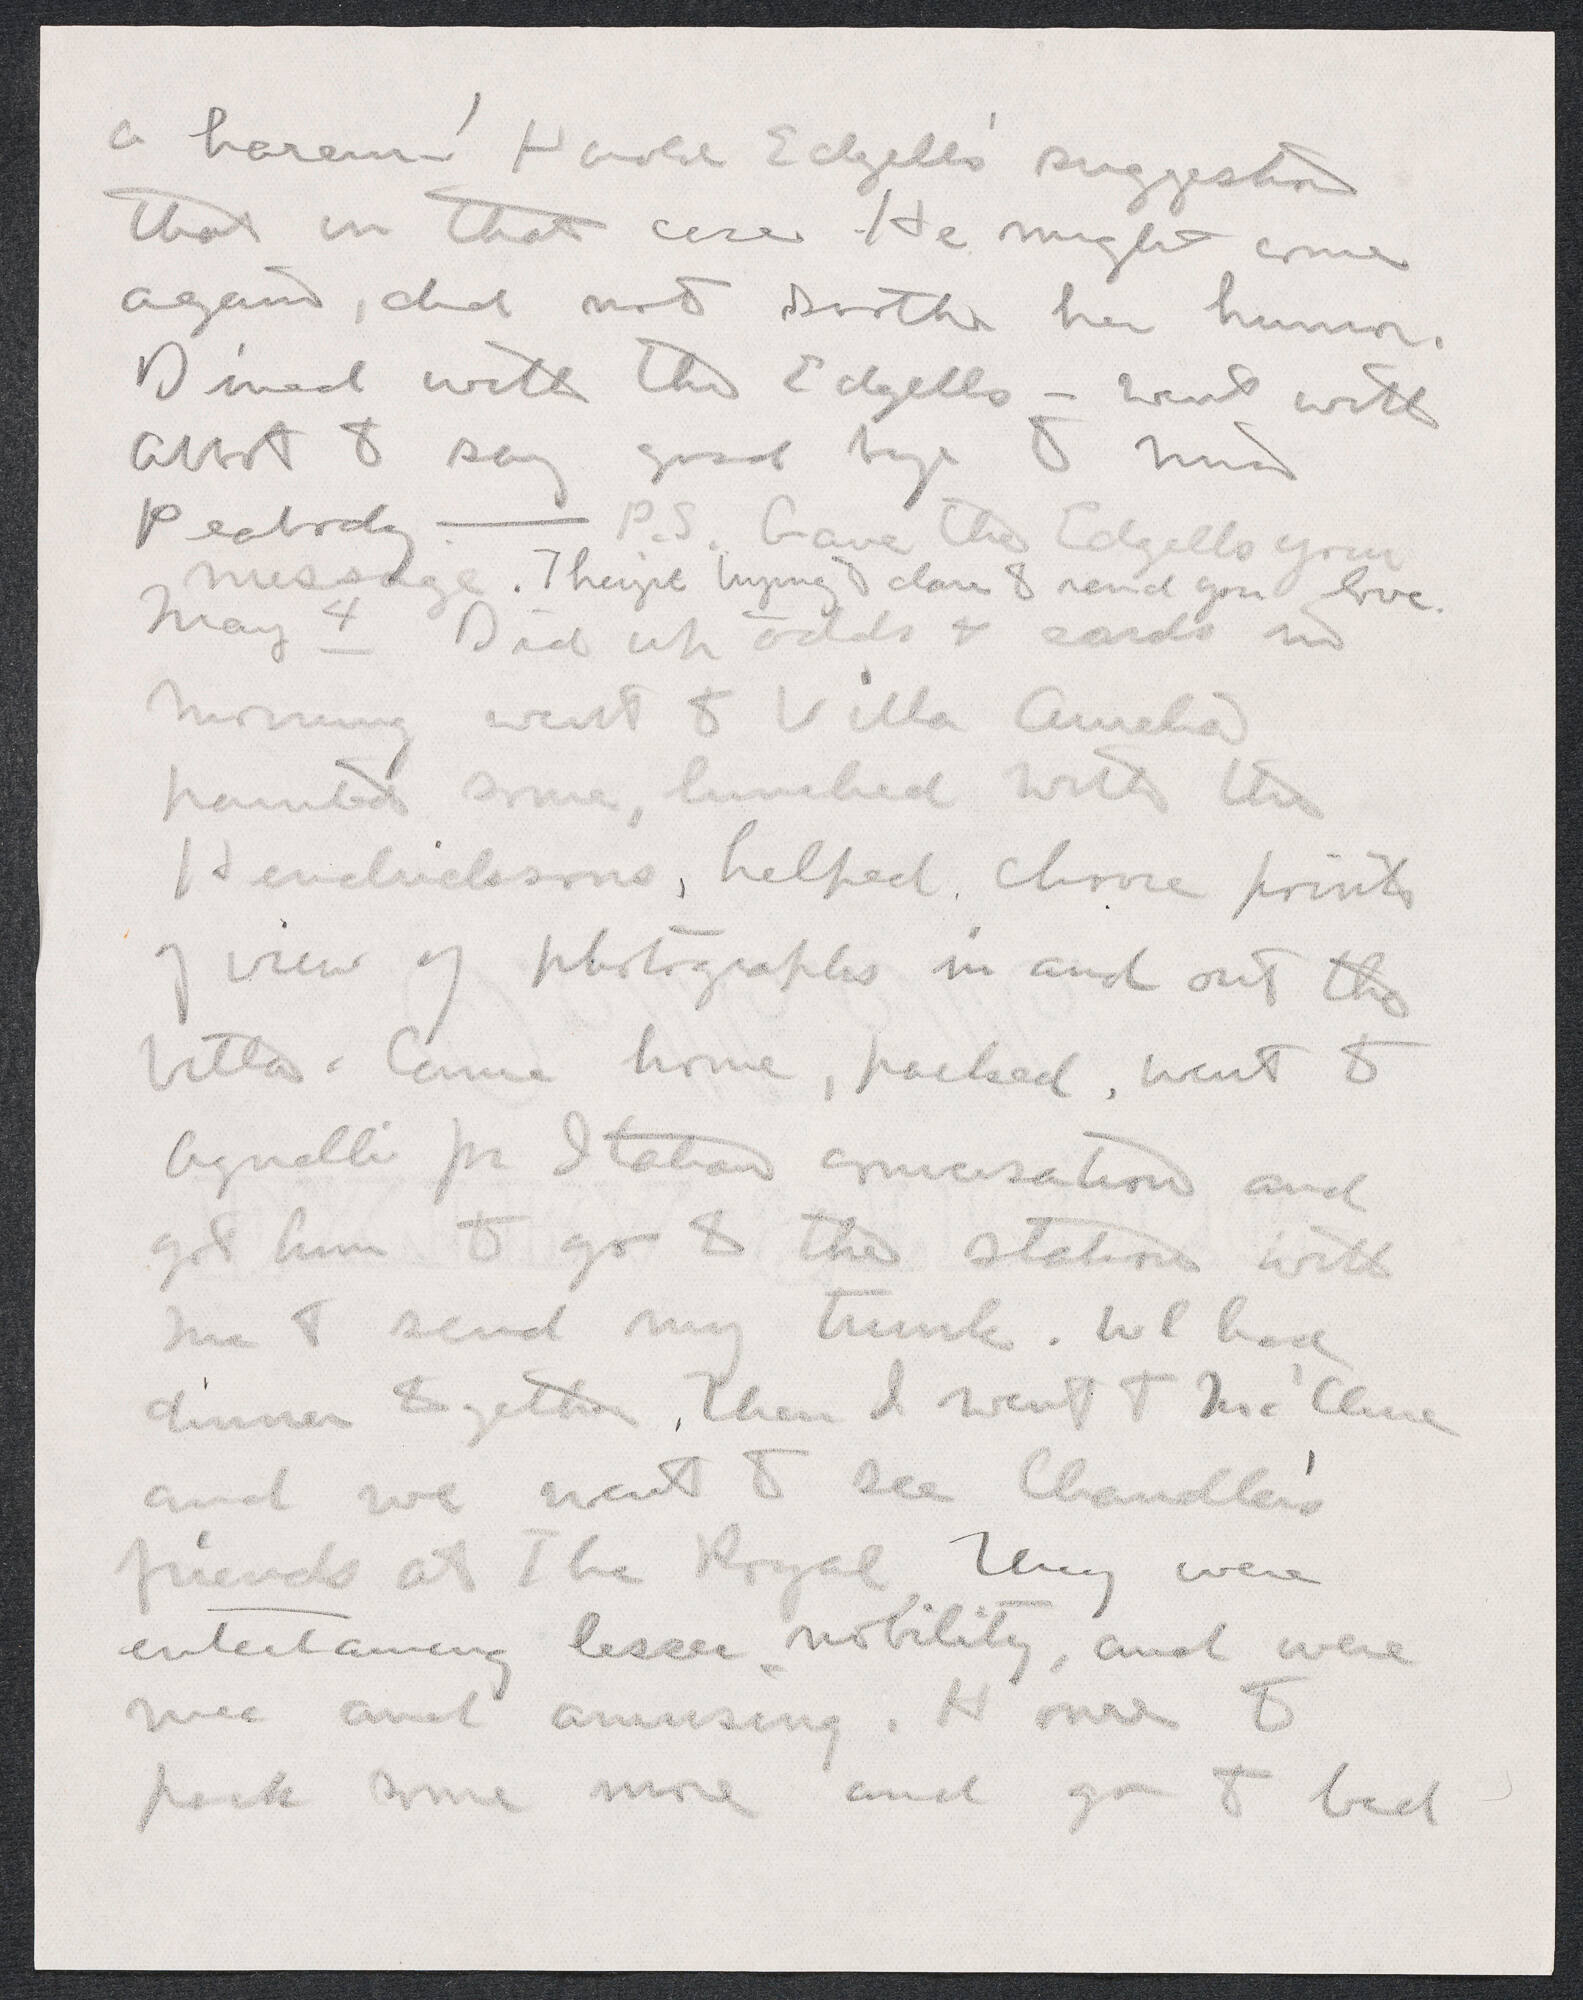 a harem! Harold Edgell's suggestion
that in that case He might come
again, did not soothe her humor.
Dined with the Edgells – went with
Abbot to say good bye to Mrs
Peabody. — P.S. Gave the Edgells your
message. They're trying to dare to send you love.
May 4 Did up odds & ends in
morning went to Villa Amelia
painted some, lunched with the
Hendricksons, helped choose points
of view of photographs in and out the
Villa. Came home, packed, went to
Agnelli for Italian conversation and
got him to go to the station with
me & send my trunk. We had
dinner together, Then I went to McClure
and we went to see Chandler's
friends at The Royal. They were
entertaining lesser nobility, and were
nice and amusing. Home to
pack some more and go to bed